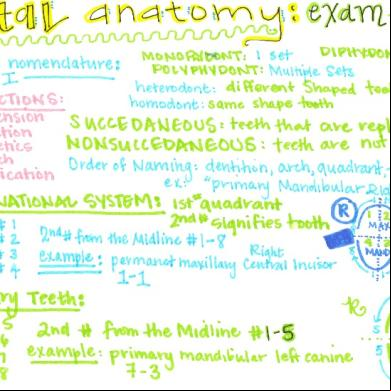 tal anatomy: exam
nomenclature:
I
MONOPHYDONT: 1 set
DIPHYDON
POLYPHYDONT: Multiple Sets
heterodont: different shaped tee
homodont: same shape tooth
CTIONS:
ension
tion
etics
ch
ication
SUCCEDANEOUS: teeth that are repl
NONSUCCEDANEOUS: teeth are not
Order of Naming: dentition, arch, quadrant,
ex: "primary Mandibular
NATIONAL SYSTEM:
1st # quadrant
2nd # signifies tooth
R
MAX
MAND
#1
#2
#3
#4
2nd # from the Midline #1-8
example: permanet maxillary Right Central Incisor
1-1
ry Teeth:
5
6
7
8
2nd # from the Midline #1-5
example: primary mandibular left canine
7-3
R
5
5